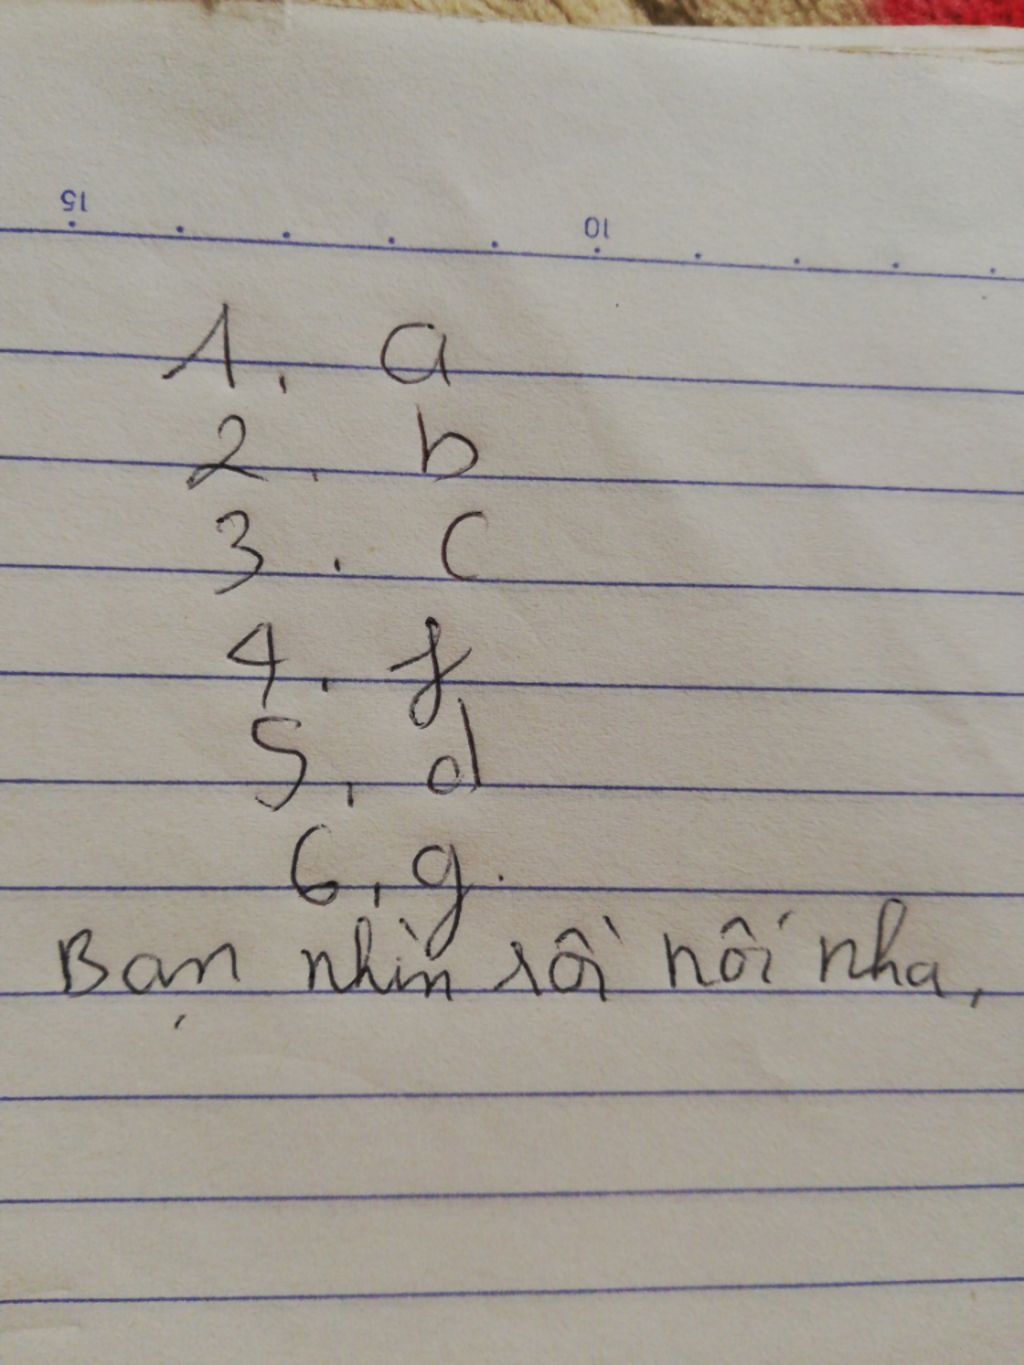 15 10
1. a
2. b
3. c
4. f
5, d
6, g.
Bạn nhìn rồi nối nha,